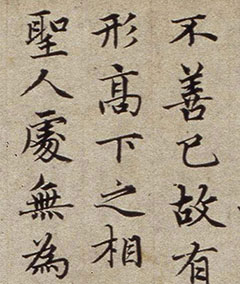 不善已故有
形高下之相
聖人處無為